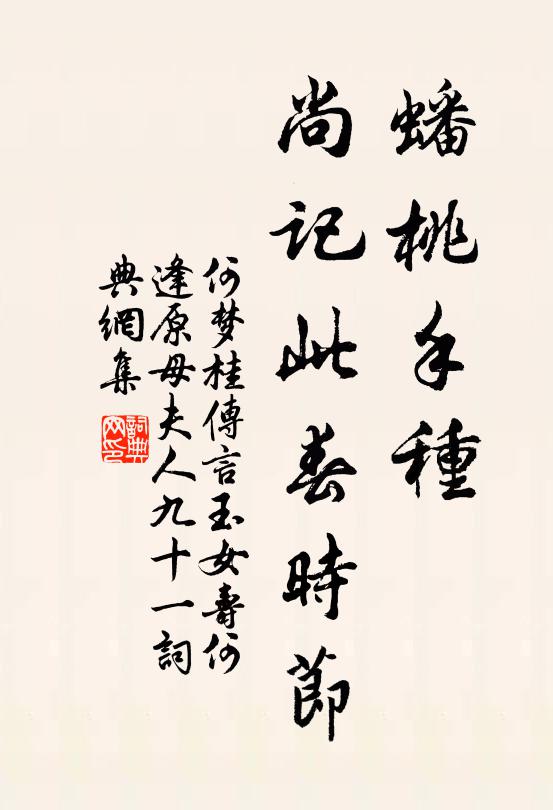 蟠桃手種
尚記此春時節
何梦桂傳言玉女壽何
逢原母夫人九十一詞
典網集
詞典
网印